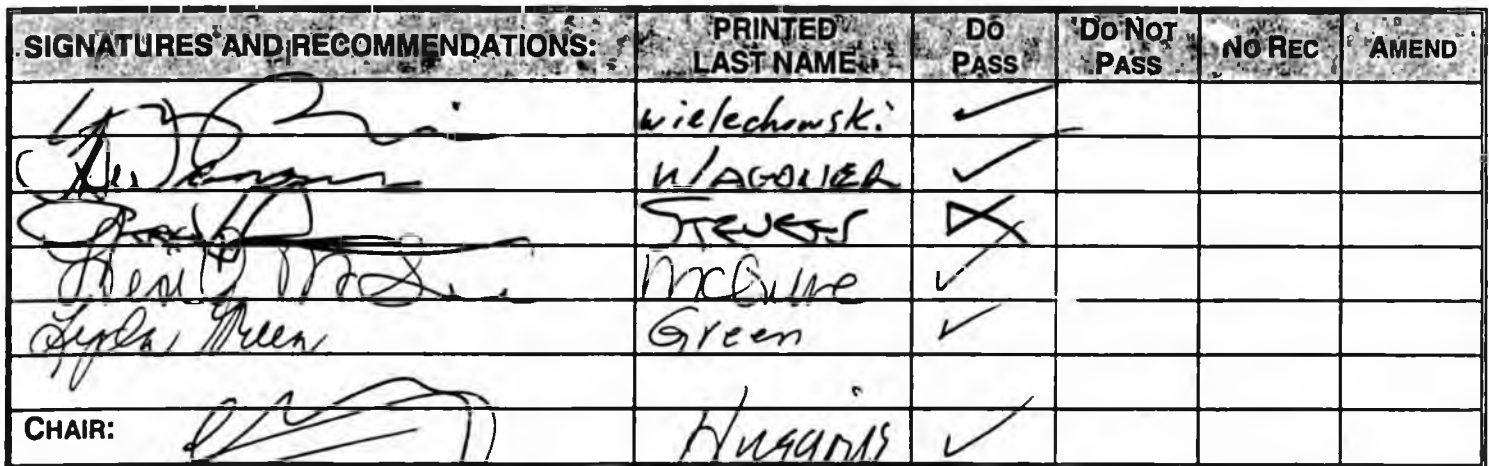 SIGNATURES AND RECOMMENDATIONS: PRINTED LAST NAME DO PASS DO NOT PASS NO REC AMEND
wielechowski ✓
WAGONER ✓
STEVENS X
McGuire ✓
Lynda Green Green ✓
CHAIR: Huggins ✓